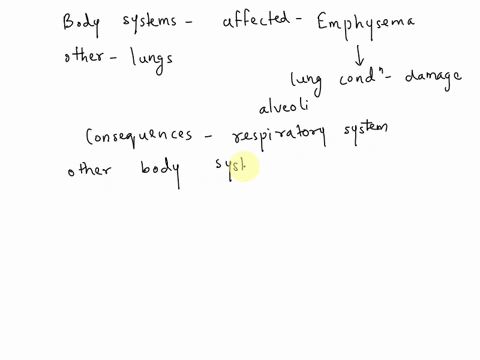 Body systems - affected - Emphysema
other - lungs
lung condⁿ - damage
alveoli
Consequences - respiratory system
other body syst